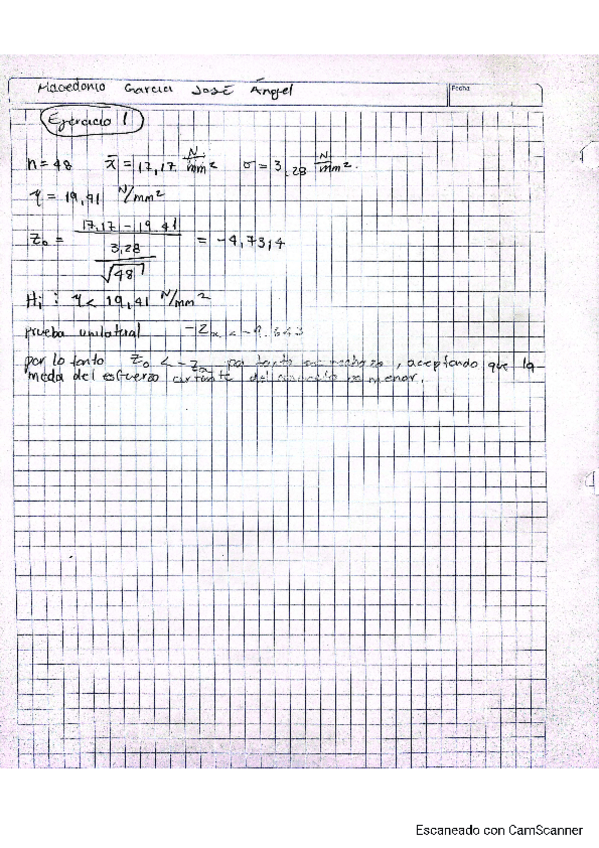 Macedonio Garcia José Ángel
Fecha
Ejercicio 1
n = 48 x̄ = 17,17 N/mm² σ = 3,28 N/mm².
μ = 19,41 N/mm²
z₀ = (17,17 - 19,41) / (3,28 / √48) = -4,7314
Hi : μ < 19,41 N/mm²
prueba unilatual
por lo tanto z₀ < -zα por tanto se rechaza, aceptando que la
meda del esfuerzo cortante menor.
Escaneado con CamScanner